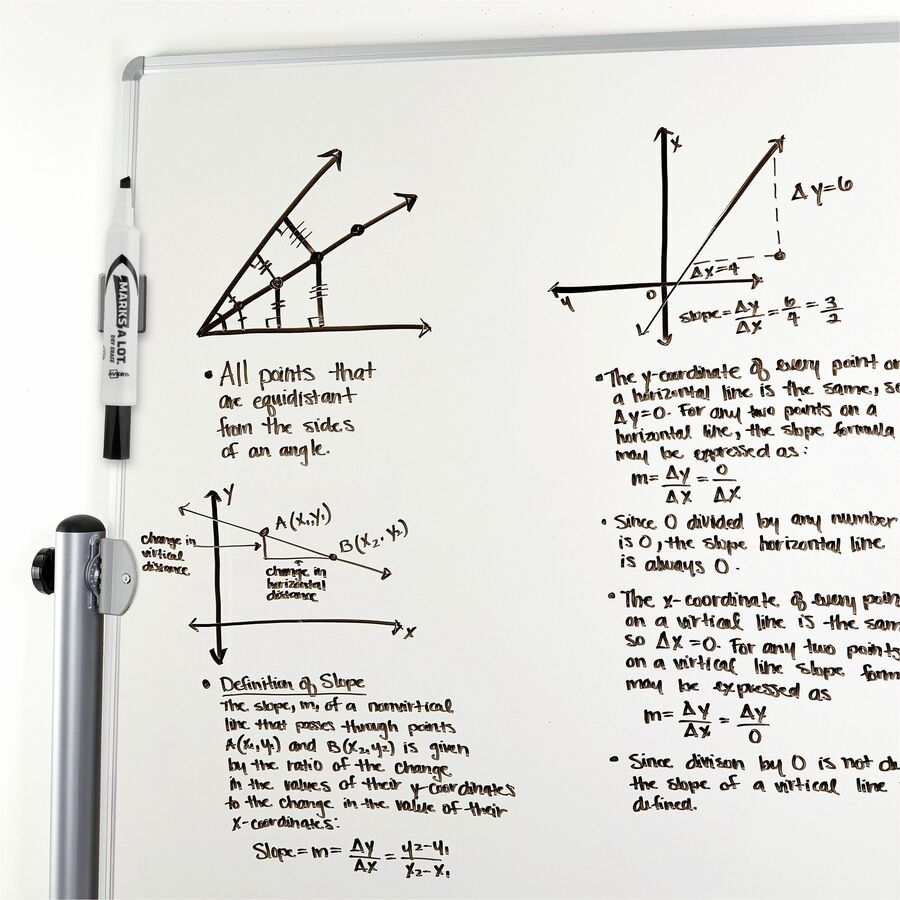 MARKS A LOT.
DRY ERASE
AVERY
• All points that
are equidistant
from the sides
of an angle.
Y
A(x₁,y₁)
B(x₂,y₂)
change in
virtical
distance
change in
horizontal
distance
X
• Definition of Slope
The slope, m, of a nonvirtical
line that passes through points
A(x₁,y₁) and B(x₂,y₂) is given
by the ratio of the change
in the values of their y-coordinates
to the change in the value of their
x-coordinates:
Slope = m = ΔY/ΔX = y₂-y₁/x₂-x₁
X
Δy=6
Δx=4
y
0
slope = Δy/Δx = 6/4 = 3/2
• The y-coordinate of every point on
a horizontal line is the same, so
Δy=0. For any two points on a
horizontal line, the slope formula
may be expressed as:
m = ΔY/ΔX = 0/ΔX
• Since 0 divided by any number
is 0, the slope horizontal line
is always 0.
• The x-coordinate of every poin
on a virtical line is the sam
so ΔX=0. For any two points
on a virtical line slope form
may be expressed as
m = ΔY/ΔX = ΔY/0
• Since divison by 0 is not de
the slope of a virtical line
defined.